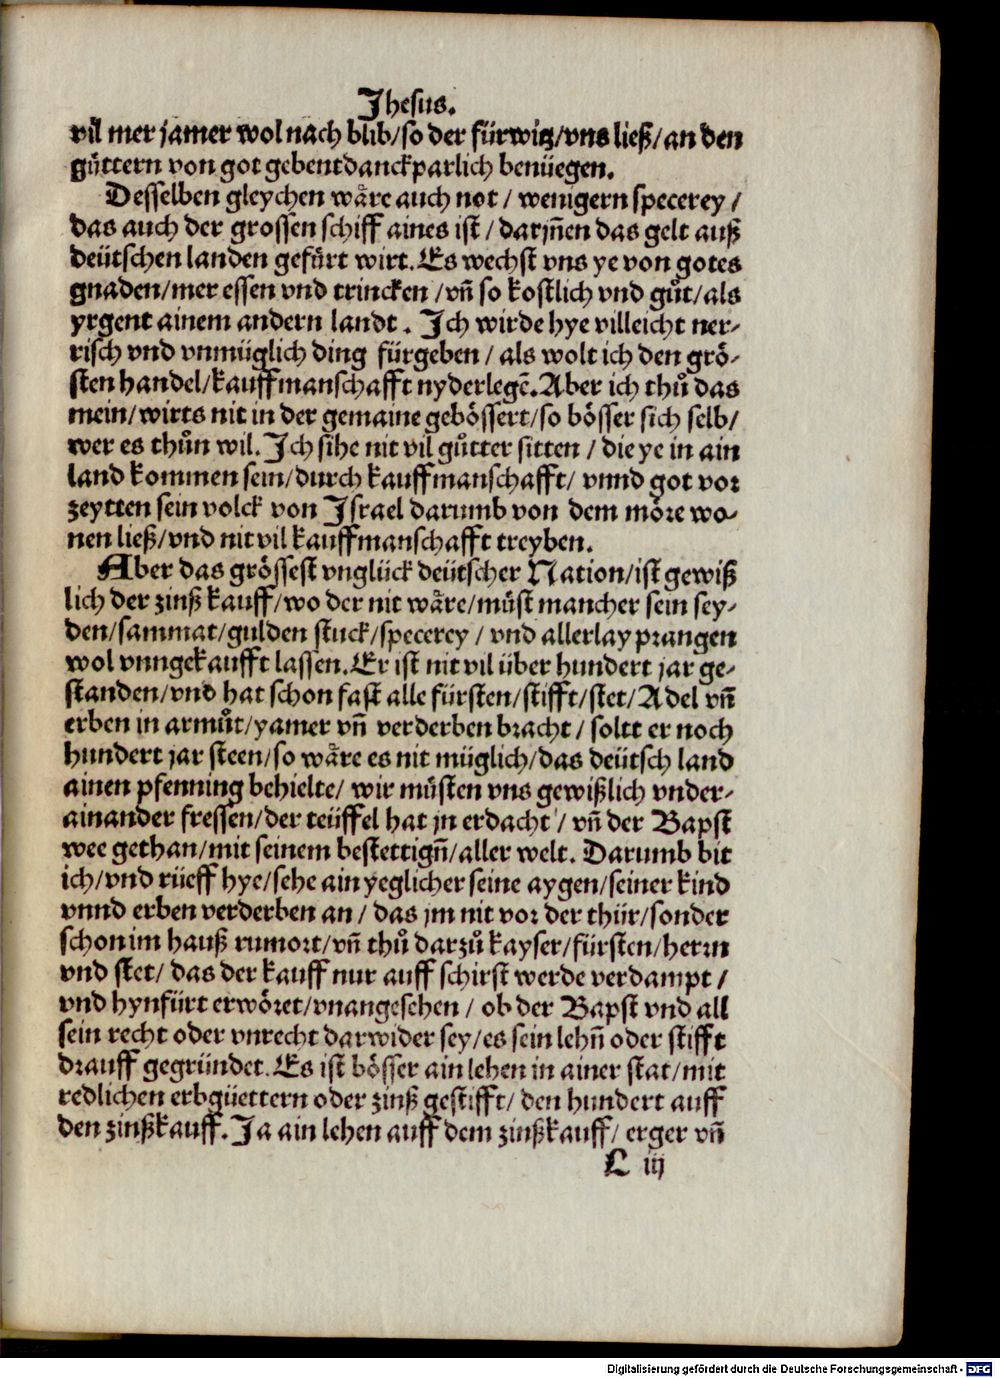 Jhesus.
vil mer jamer wol nach blib/so der fürwitz/vns ließ/an den
guͤttern von got gebent danckparlich benüegen.
Desselben gleychen waͤre auch not / wenigern specerey /
das auch der grossen schiff aines ist / darjn̄en das gelt auß
deütschen landen gefuͤrt wirt. Es wechst vns ye von gotes
gnaden/mer essen vnd trincken /vn̄ so kostlich vnd guͦt/als
yrgent ainem andern landt . Ich wirde hye villeicht ner-
risch vnd vnmüglich ding fürgeben / als wolt ich den grö-
sten handel/kauffmanschafft nyderlegē. Aber ich thuͦ das
mein/wirts nit in der gemaine gebössert/so bösser sich selb/
wer es thuͦn wil. Ich sihe nit vil guͦtter sitten / die ye in ain
land kommen sein/durch kauffmanschafft/ vnnd got vor
zeytten sein volck von Israel darumb von dem moͤre wo-
nen ließ/vnd nit vil kauffmanschafft treyben.
Aber das grössest vnglück deütscher Nation/ist gewiß
lich der zinß kauff/wo der nit waͤre/muͤst mancher sein sey-
den/sammat/gulden stuck/specerey / vnd allerlay prangen
wol vnngekaufft lassen. Er ist nit vil über hundert jar ge-
standen/vnd hat schon fast alle fürsten/stifft/stet/Adel vn̄
erben in armuͦt/yamer vn̄ verderben bracht / soltt er noch
hundert jar steen/so waͤre es nit müglich/das deütsch land
ainen pfenning behielte/ wir muͤsten vns gewißlich vnder-
ainander fressen/der teüffel hat jn erdacht / vn̄ der Bapst
wee gethan/mit seinem bestettign̄/aller welt. Darumb bit
ich/vnd rüeff hye/sehe ain yeglicher seine aygen/seiner kind
vnnd erben verderben an / das jm nit vor der thür/sonder
schon im hauß rumort/vn̄ thuͦ darzuͦ kayser/fürsten/herrn
vnd stet/ das der kauff nur auff schirst werde verdampt /
vnd hynfürt erwöret/vnangesehen / ob der Bapst vnd all
sein recht oder vnrecht darwider sey/es sein lehn̄ oder stifft
drauff gegründet. Es ist bösser ain lehen in ainer stat/mit
redlichen erbgüettern oder zinß gestifft/ den hundert auff
den zinßkauff. Ja ain lehen auff dem zinßkauff/ erger vn̄
L iij
Digitalisierung gefördert durch die Deutsche Forschungsgemeinschaft - DFG